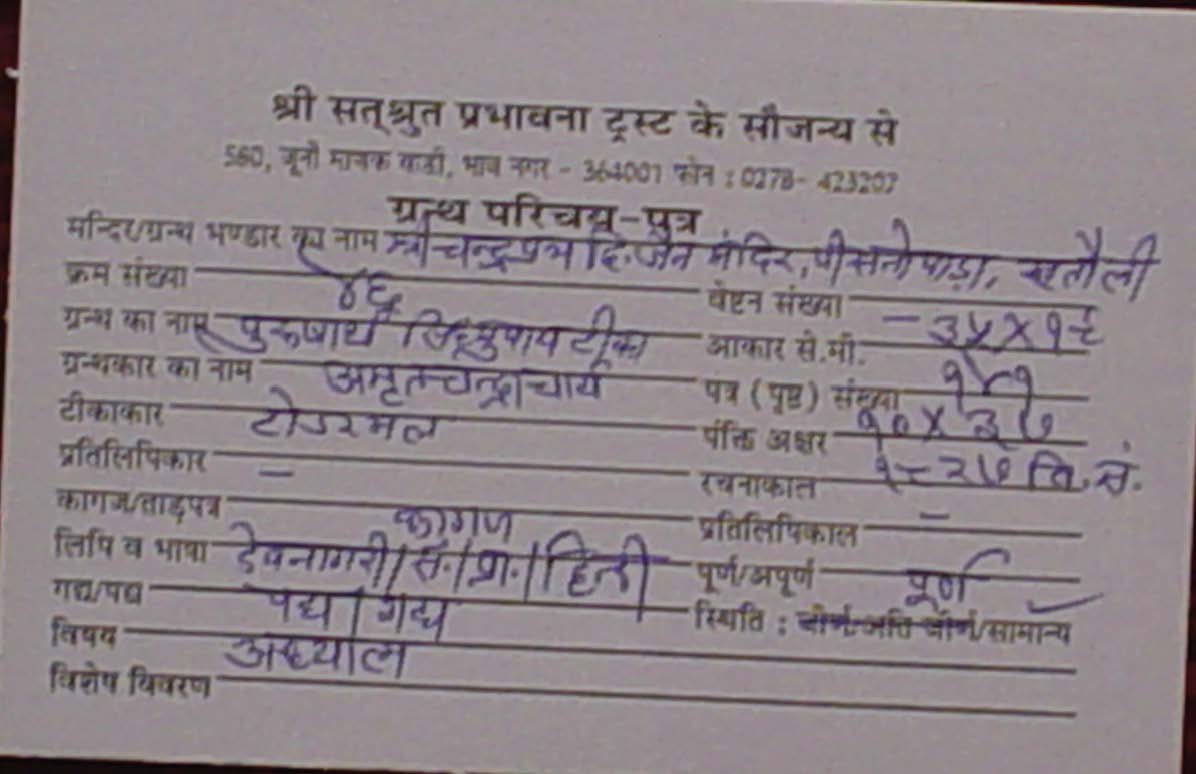 श्री सत्श्रुत प्रभावना ट्रस्ट के सौजन्य से
560, जूनी माणेक वाडी, भाव नगर - 364001 फोन : 0278- 423207
ग्रन्थ परिचय-पत्र
मन्दिर/ग्रन्थ भण्डार का नाम श्री चन्द्रप्रभ दि. जैन मंदिर, पीसनोपाड़ा, खतौली
क्रम संख्या ४६ वेष्टन संख्या -
ग्रन्थ का नाम पुरुषार्थ सिद्ध्युपाय टीका आकार से.मी. ३५X१८
ग्रन्थकार का नाम अमृतचन्द्राचार्य पत्र (पृष्ट) संख्या १४१
टीकाकार टोडरमल पंक्ति अक्षर १०X३७
प्रतिलिपिकार - रचनाकाल १८२७ वि. सं.
कागज/ताड़पत्र कागज प्रतिलिपिकाल -
लिपि व भाषा देवनागरी/सं./प्रा./हिन्दी पूर्ण/अपूर्ण पूर्ण
गद्य/पद्य पद्य/गद्य स्थिति : जीर्ण/अति जीर्ण/सामान्य
विषय अध्यात्म
विशेष विवरण